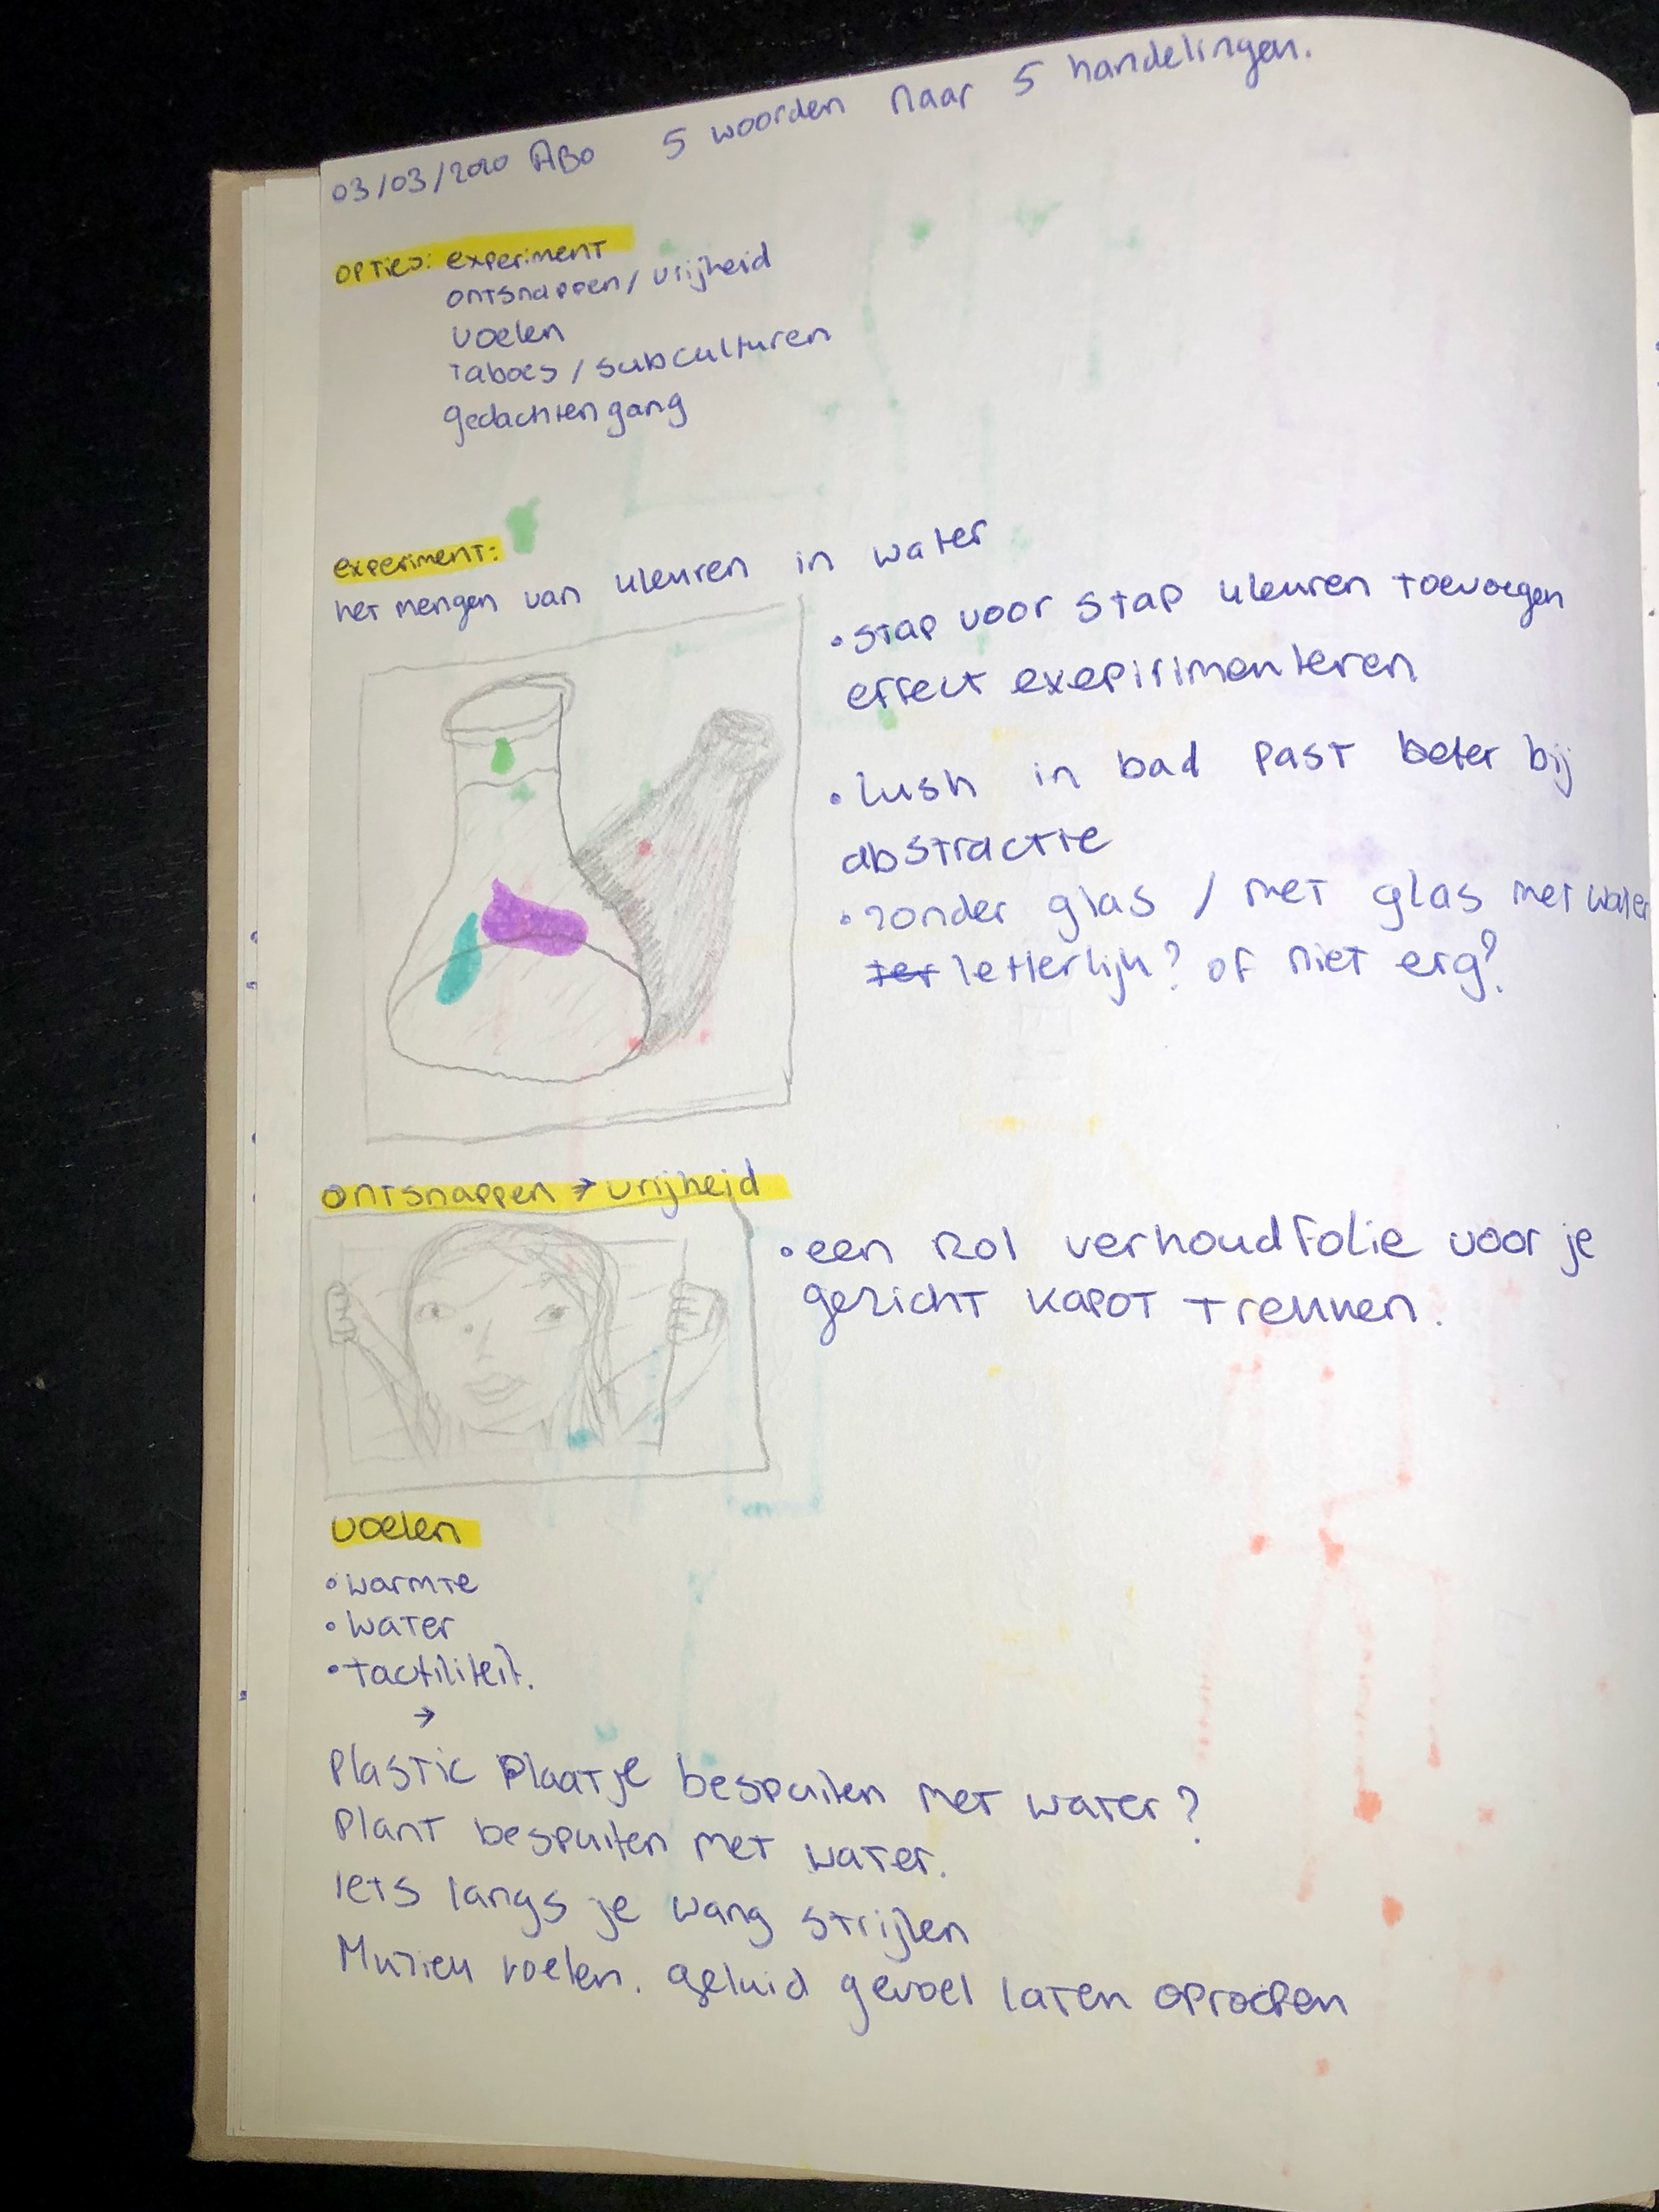 03/03/2020 ABO 5 woorden naar 5 handelingen.
opties: experiment
ontsnappen / vrijheid
voelen
taboes / subculturen
gedachtengang
experiment:
het mengen van kleuren in water
• stap voor stap kleuren toevoegen
effect exepirimenteren
• lush in bad past beter bij
abstractie
• zonder glas / met glas met water
letterlijk? of niet erg?
ontsnappen → vrijheid
• een rol verhoudfolie voor je
gezicht kapot trekken.
voelen
• warmte
• water
• tactiliteit.
→
Plastic Plaatje bespuiten met water?
Plant bespuiten met water.
Iets langs je wang strijken
Muziek voelen. geluid gevoel laten oproepen